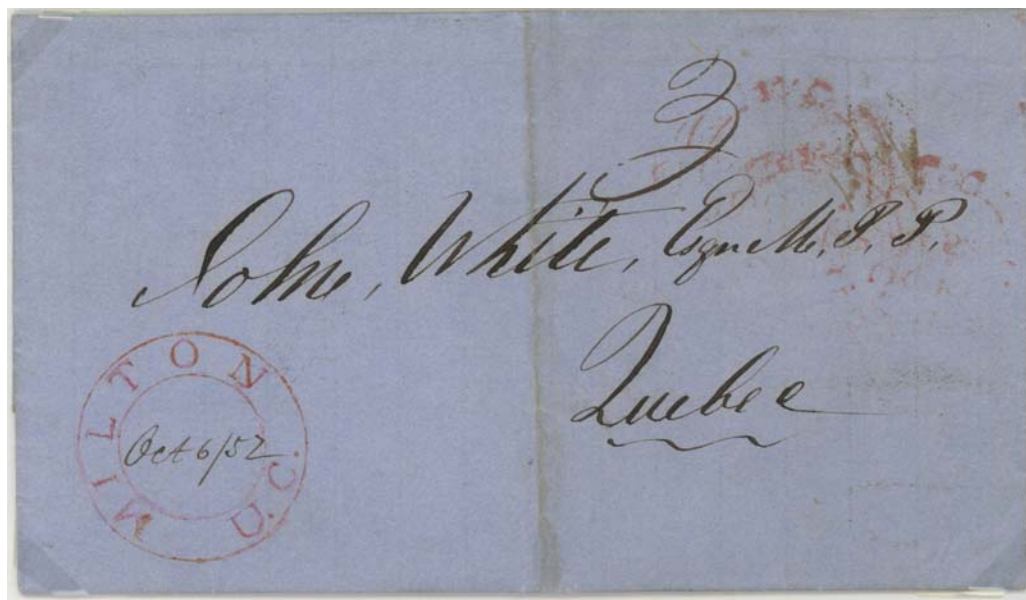 3
John, White, Esqre M, P, P,
Quebec
MILTON U.C.
Oct 6/52